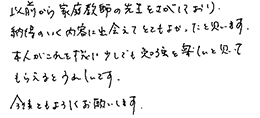 以前から家庭教師の先生をさがしており、
納得のいく内容に出会えてとてもよかったと思います。
本人がこれを機に少しでも勉強を楽しいと思って
もらえるとうれしいです。
今後ともよろしくお願いします。